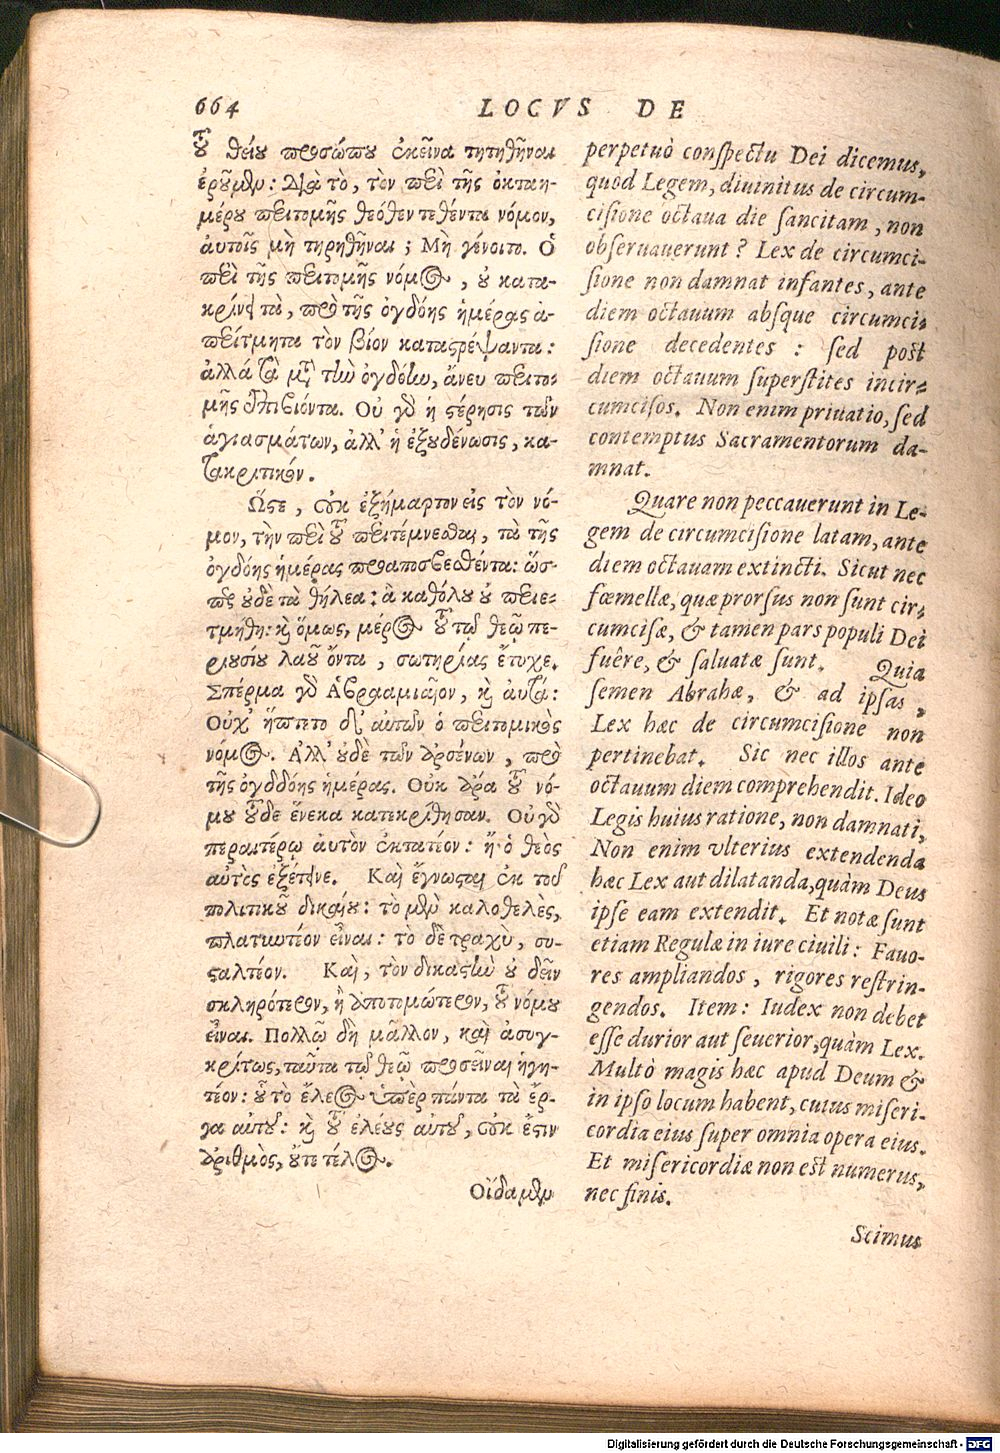 664
LOCVS DE
τοῦ θείου προσώπου ἐκεῖνα τητηθῆναι
ἐροῦμεν: Διὰ τὸ, τὸν περὶ τῆς ὀκταη-
μέρου περιτομῆς θεόθεν τεθέντα νόμον,
αὐτοῖς μὴ τηρηθῆναι; Μὴ γένοιτο. Ὁ
περὶ τῆς περιτομῆς νόμος, οὐ κατα-
κρίνει τὰ, πρὸ τῆς ὀγδόης ἡμέρας ἀ-
περίτμητα τὸν βίον καταστρέψαντα:
ἀλλὰ τὰ μετὰ τὴν ὀγδόην, ἄνευ περιτο-
μῆς ἐπιβιόντα. Οὐ γὰρ ἡ στέρησις τῶν
ἁγιασμάτων, ἀλλ' ἡ ἐξουδένωσις, κα-
τακριτικόν.
Ὥστε, οὐκ ἐξήμαρτον εἰς τὸν νό-
μον, τὴν περὶ τοῦ περιτέμνεσθαι, τὰ τῆς
ὀγδόης ἡμέρας προαποσβεσθέντα: ὥσ-
περ οὐδὲ τὰ θήλεα: ἃ καθόλου οὐ περιε-
τμήθη: καὶ ὅμως, μέρος τοῦ τῷ θεῷ πε-
ριουσίου λαοῦ ὄντα, σωτηρίας ἔτυχε.
Σπέρμα γὰρ Ἀβρααμιαῖον, καὶ αὐτά:
Οὐχ' ἥπτετο δὲ αὐτῶν ὁ περιτομικὸς
νόμος. Ἀλλ' οὐδὲ τῶν ἀρσένων, πρὸ
τῆς ὀγδδόης ἡμέρας. Οὐκ ἄρα τοῦ νό-
μου τοῦδε ἕνεκα κατεκρίθησαν. Οὐ γὰρ
περαιτέρω αὐτὸν ἐκτατέον: ἢ ὁ θεὸς
αὐτὸς ἐξέτεινε. Καὶ ἔγνωσται ἐκ τοῦ
πολιτικοῦ δικαίου: τὸ μὲν καλοθελὲς,
πλατυωτέον εἶναι: τὸ δὲ τραχὺ, συ-
σταλτέον. Καὶ, τὸν δικαστὴν οὐ δεῖν
σκληρότερον, ἢ ἀποτομώτερον, τοῦ νόμου
εἶναι. Πολλῷ δὴ μᾶλλον, καὶ ἀσυγ-
κρίτως, ταῦτα τῷ θεῷ προσεῖναι ἡγη-
τέον: οὗ τὸ ἔλεος ὑπὲρ πάντα τὰ ἔρ-
γα αὐτοῦ: καὶ τοῦ ἐλέους αὐτοῦ, οὐκ ἔστιν
ἀριθμὸς, οὔτε τέλος.
Οἴδαμεν
perpetuò conspectu Dei dicemus,
quod Legem, diuinitus de circum-
cisione octaua die sancitam, non
obseruauerunt? Lex de circumci-
sione non damnat infantes, ante
diem octauum absque circumci-
sione decedentes: sed post
diem octauum superstites incir-
cumcisos. Non enim priuatio, sed
contemptus Sacramentorum da-
mnat.
Quare non peccauerunt in Le-
gem de circumcisione latam, ante
diem octauam extincti. Sicut nec
fœmellæ, quæ prorsus non sunt cir-
cumcisæ, & tamen pars populi Dei
fuêre, & saluatæ sunt. Quia
semen Abrahæ, & ad ipsas,
Lex hæc de circumcisione non
pertinebat. Sic nec illos ante
octauum diem comprehendit. Ideo
Legis huius ratione, non damnati,
Non enim vlterius extendenda
hæc Lex aut dilatanda, quàm Deus
ipse eam extendit. Et notæ sunt
etiam Regulæ in iure ciuili: Fauo-
res ampliandos, rigores restrin-
gendos. Item: Iudex non debet
esse durior aut seuerior, quàm Lex.
Multò magis hæc apud Deum &
in ipso locum habent, cuius miseri-
cordia eius super omnia opera eius.
Et misericordiæ non est numerus,
nec finis.
Scimus
Digitalisierung gefördert durch die Deutsche Forschungsgemeinschaft - DFG